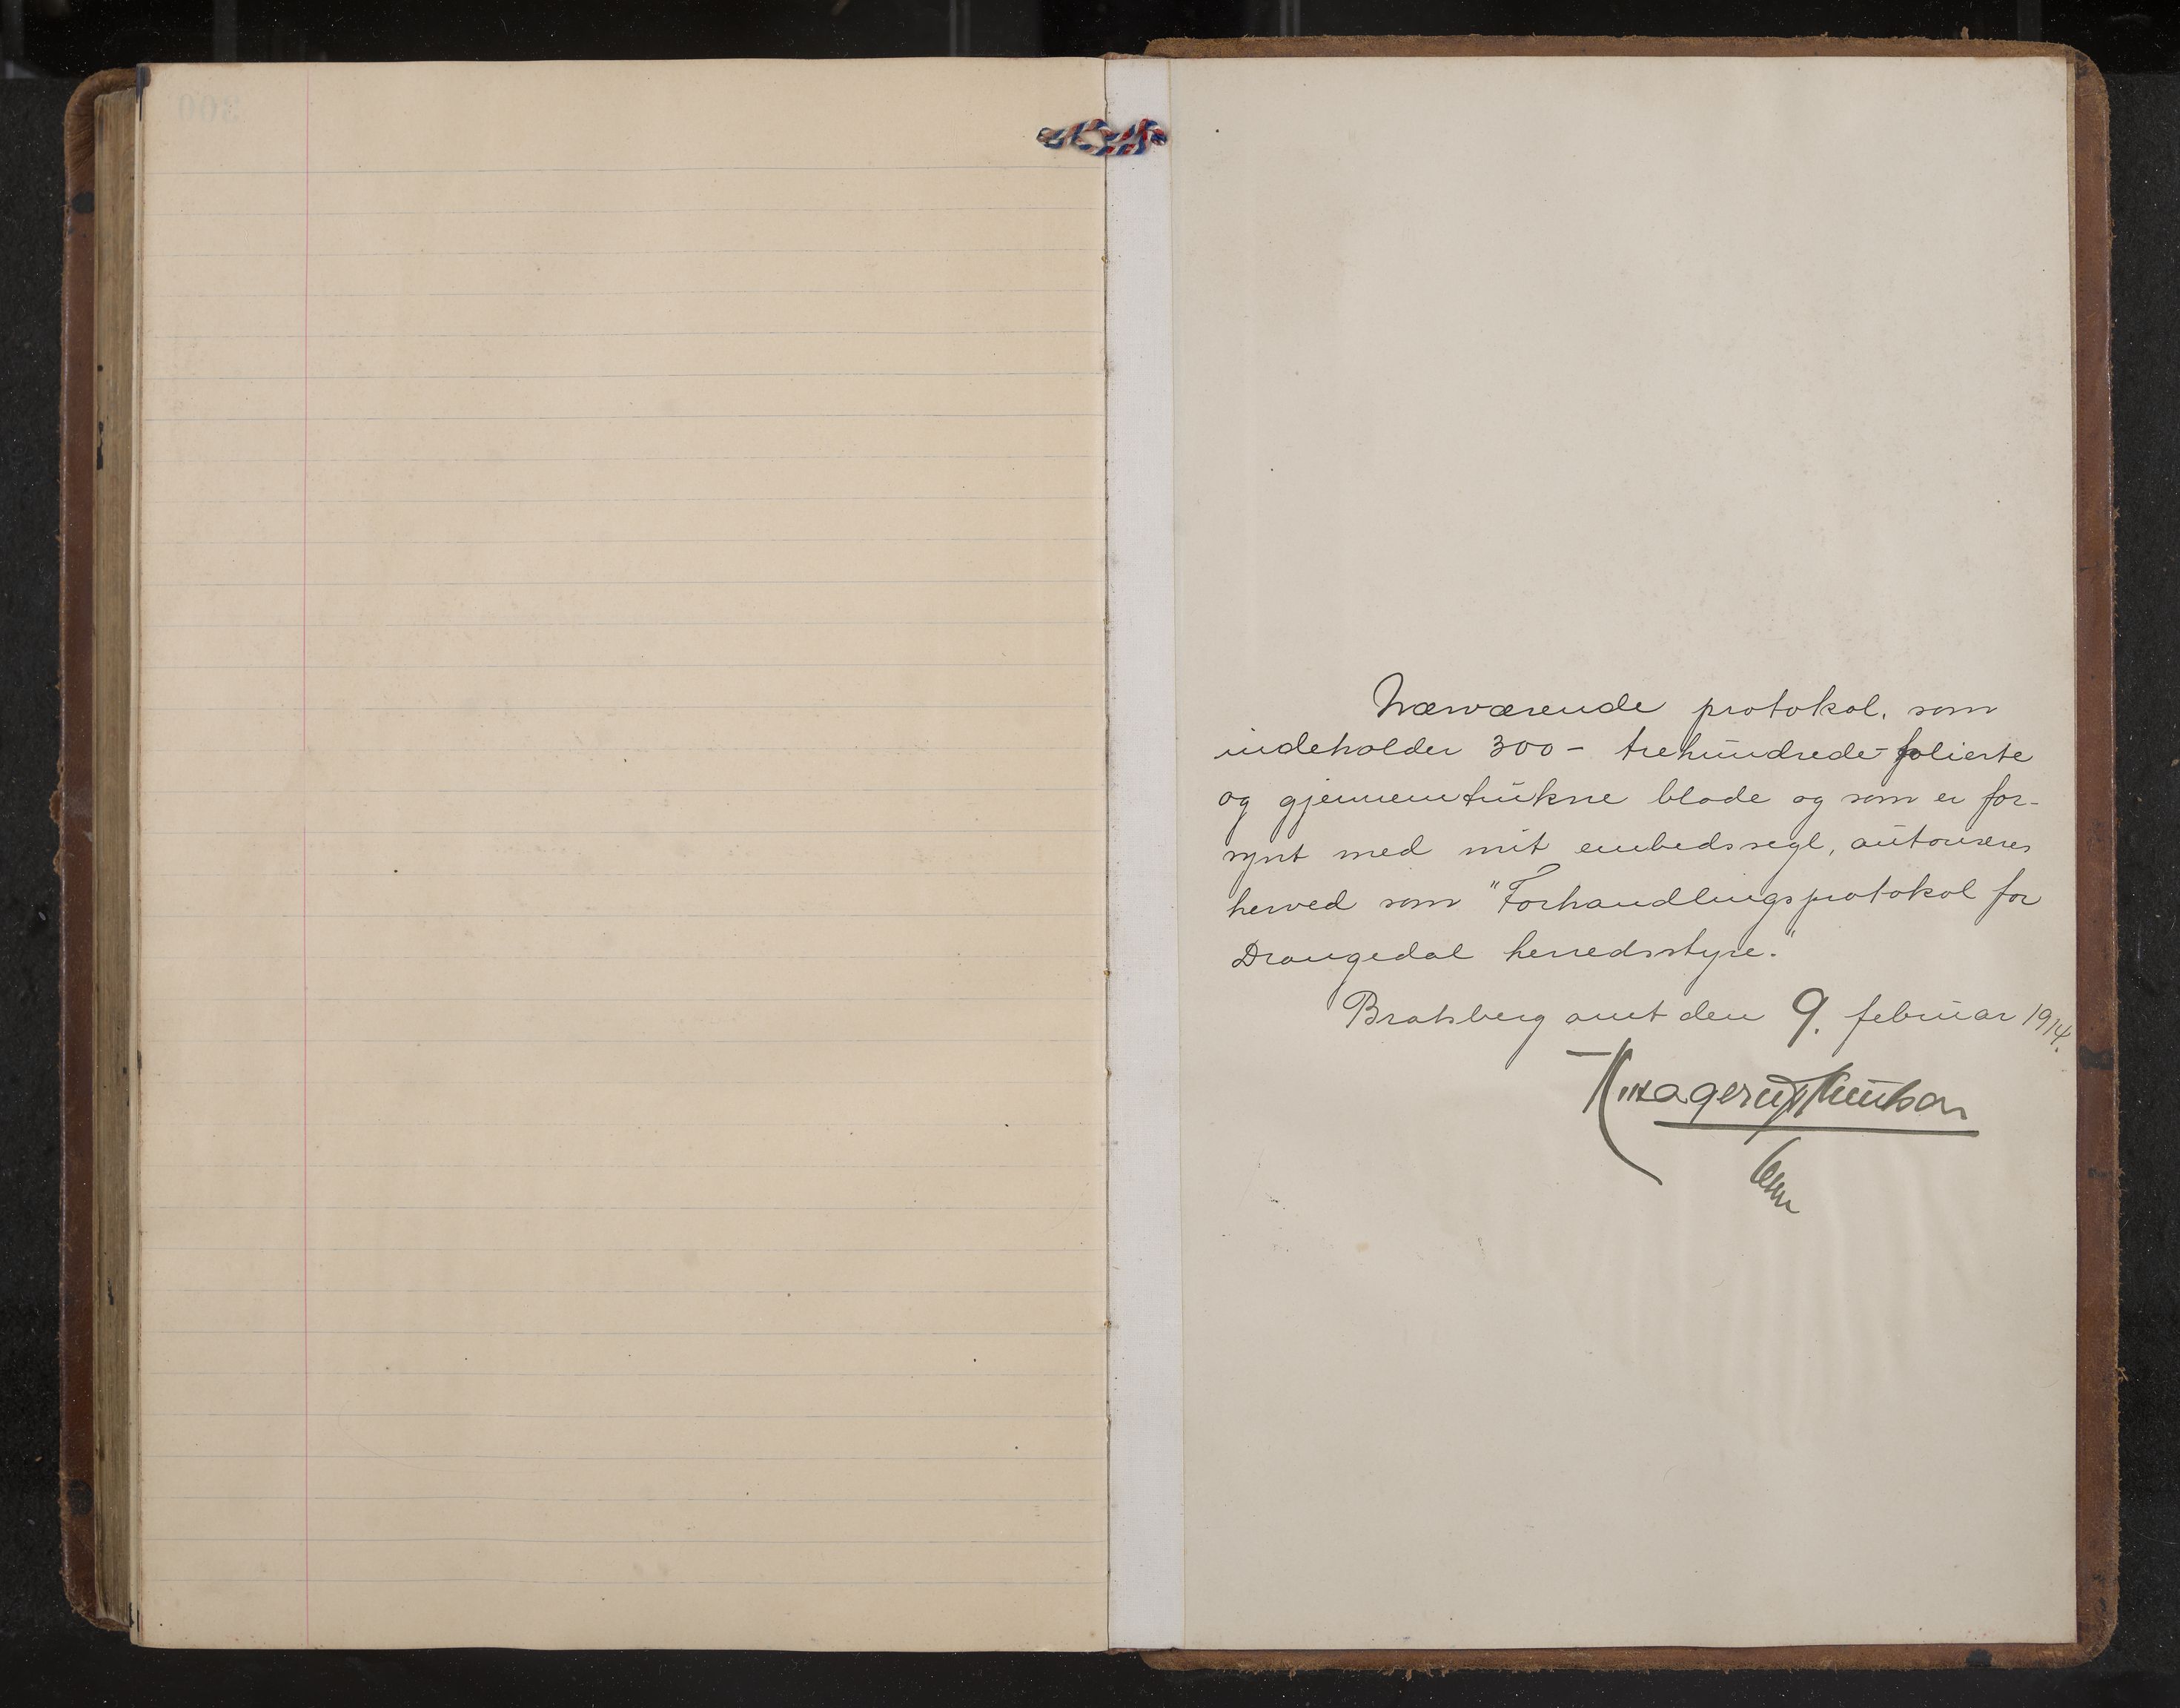 Nærværende protokol, som
indeholder 300 - trehundrede - folierte
og gjennemtrukne blade og som er for-
synt med mit embedssegl, autoriseres
herved som "Forhandlingsprotokol for
Drangedal herredsstyre."
Bratsberg amt den 9. februar 1914.